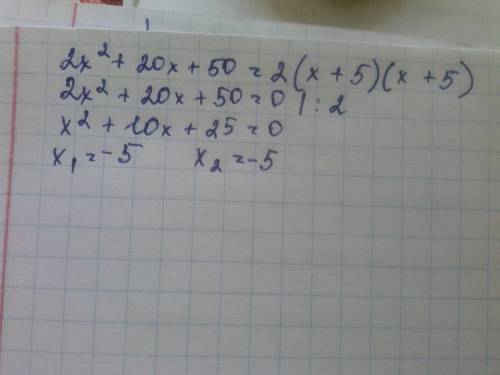 2x² + 20x + 50 = 2(x + 5)(x + 5)
2x² + 20x + 50 = 0 | : 2
x² + 10x + 25 = 0
x₁ = -5 x₂ = -5